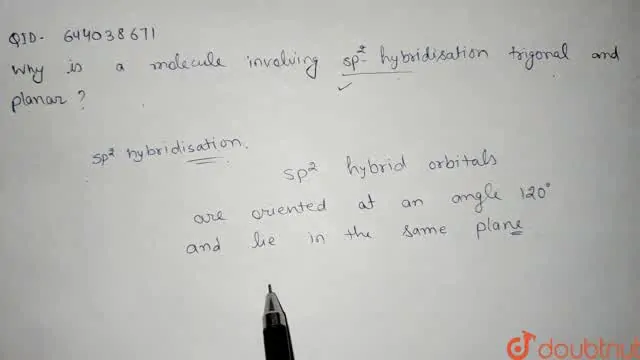 QID- 644038671
Why is a molecule involving sp² hybridisation trigonal and
planar?
sp² hybridisation.
sp² hybrid orbitals
are oriented at an angle 120°
and lie in the same plane
doubtnut